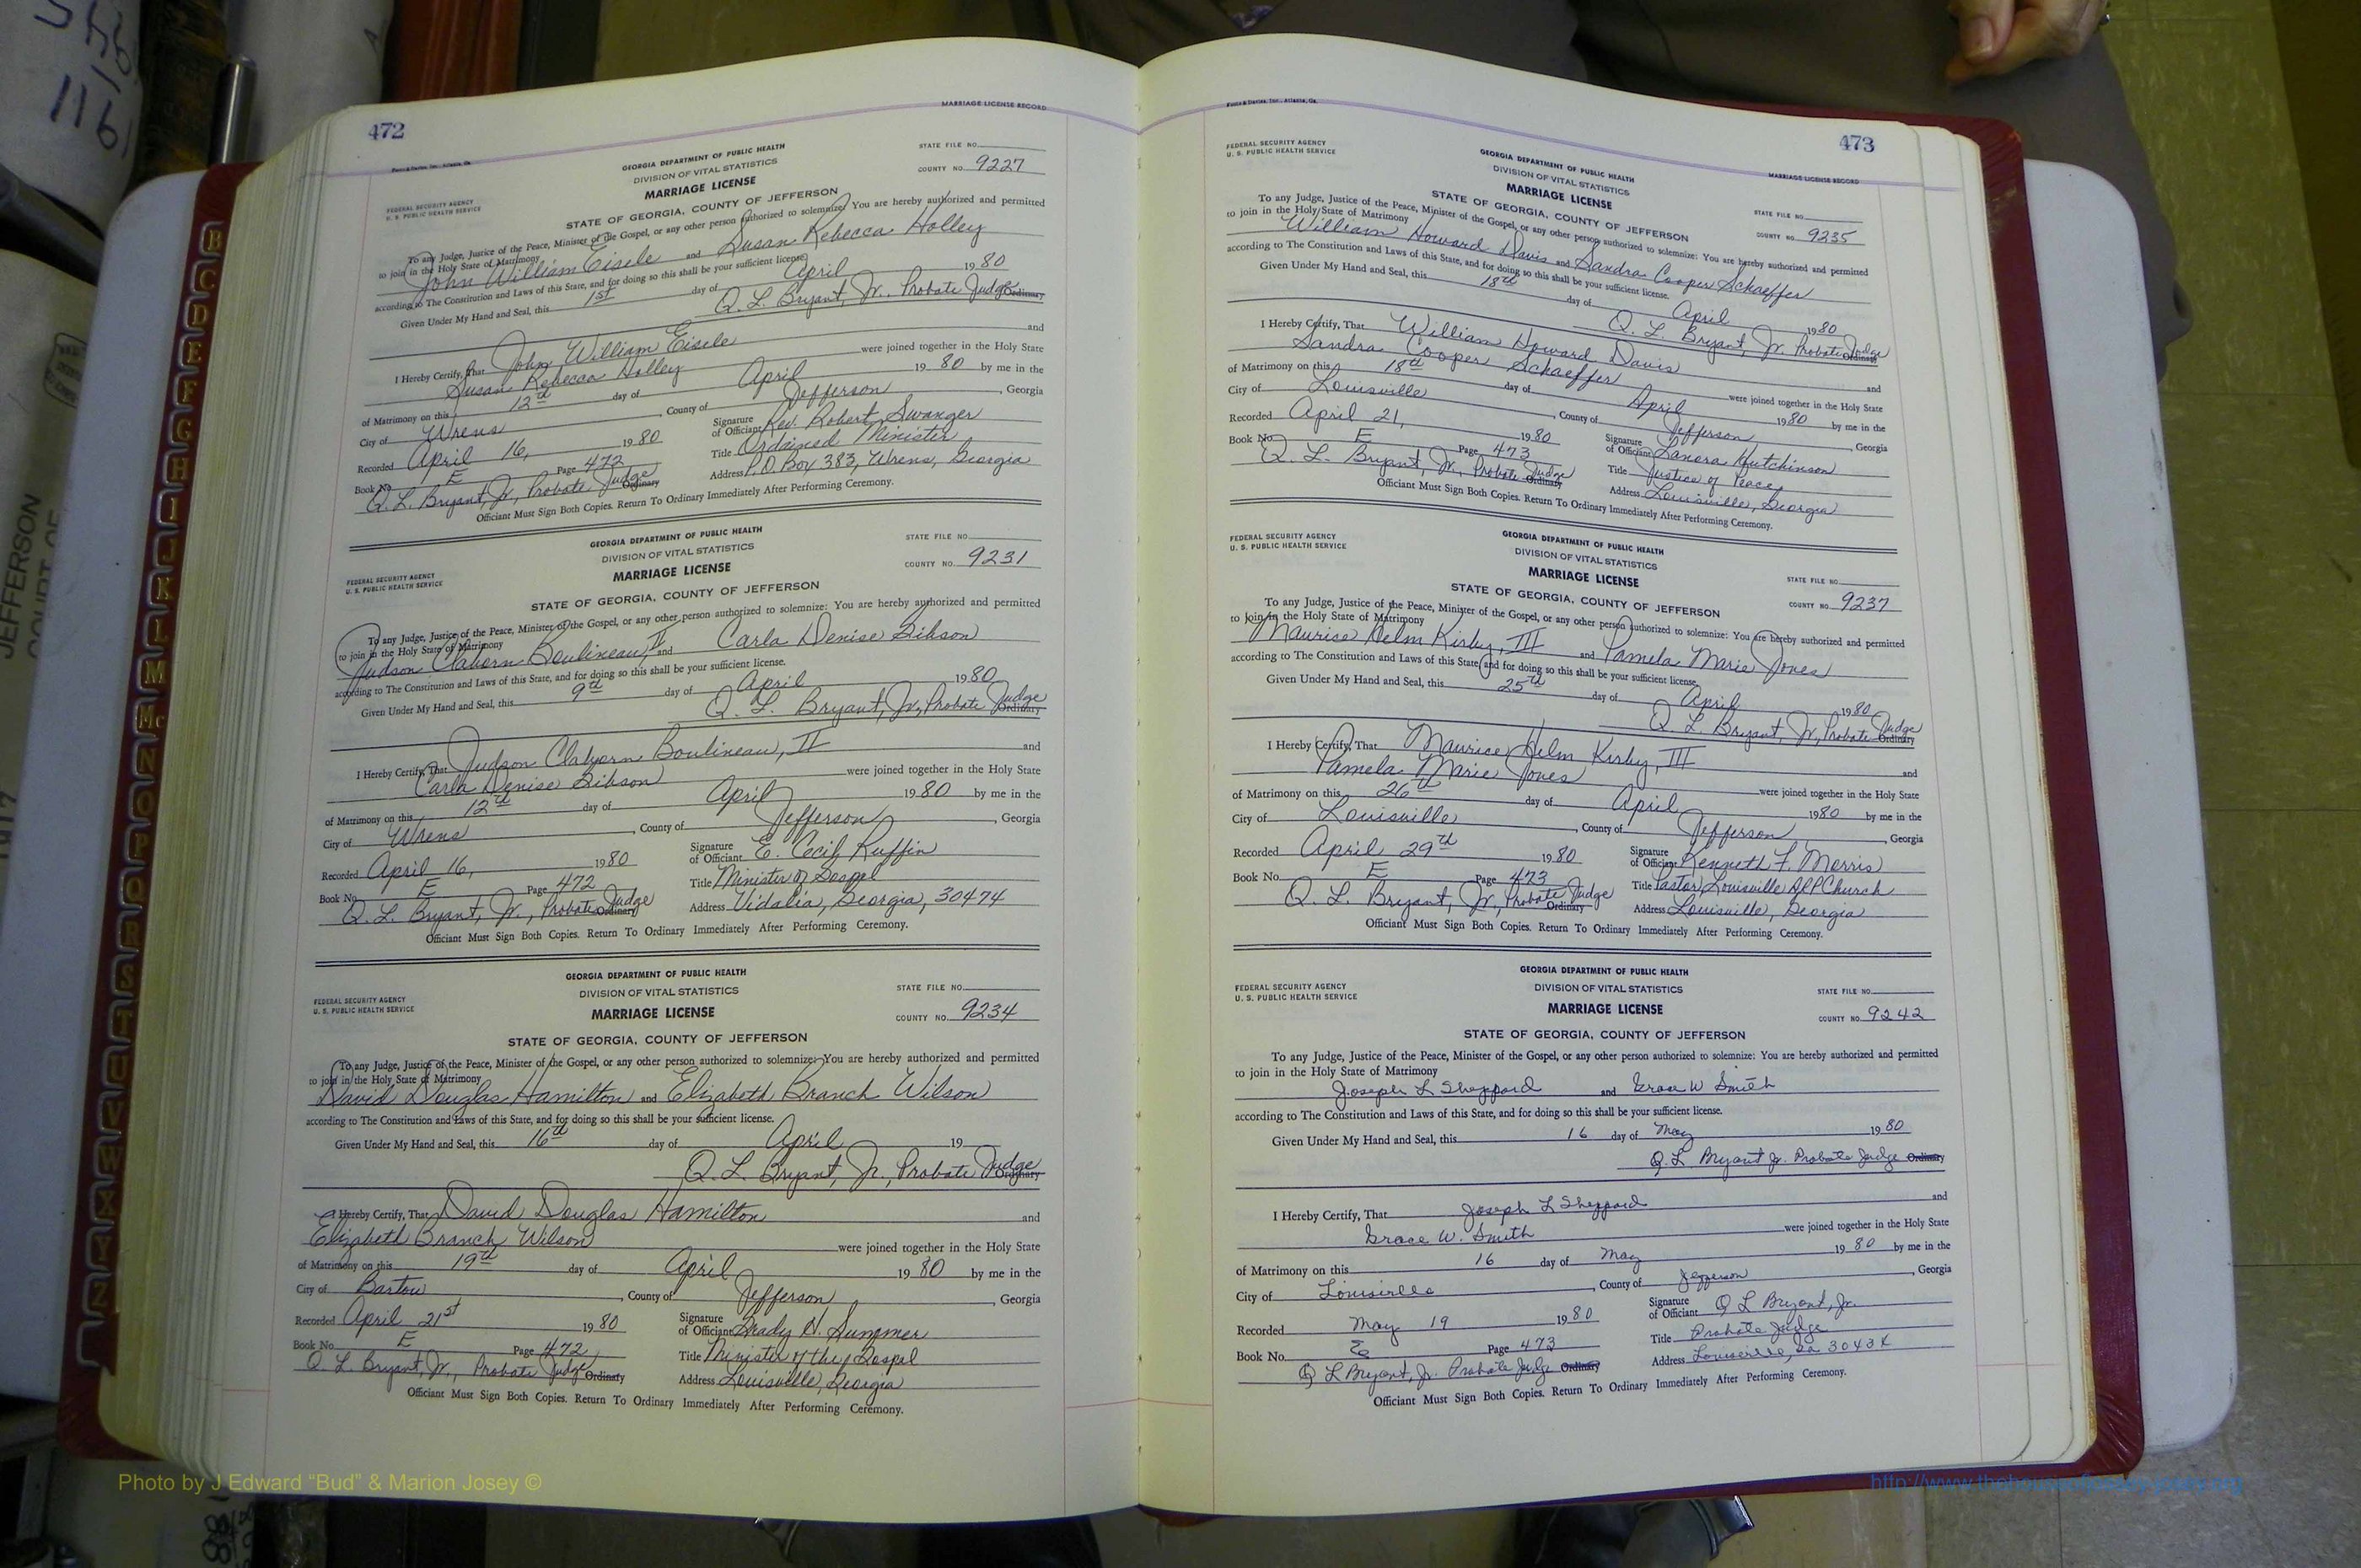 472
MARRIAGE LICENSE RECORD
FEDERAL SECURITY AGENCY
U. S. PUBLIC HEALTH SERVICE
GEORGIA DEPARTMENT OF PUBLIC HEALTH
DIVISION OF VITAL STATISTICS
MARRIAGE LICENSE
STATE OF GEORGIA, COUNTY OF JEFFERSON
STATE FILE NO.
COUNTY NO. 9227
To any Judge, Justice of the Peace, Minister of the Gospel, or any other person authorized to solemnize: You are hereby authorized and permitted
to join in the Holy State of Matrimony
John William Eisele and Susan Rebecca Holley
according to The Constitution and Laws of this State, and for doing so this shall be your sufficient license.
Given Under My Hand and Seal, this 1st day of April 1980
Q. L. Bryant, Jr., Probate Judge Ordinary
I Hereby Certify, That John William Eisele and
Susan Rebecca Holley were joined together in the Holy State
of Matrimony on this 12th day of April 1980 by me in the
City of Wrens, County of Jefferson, Georgia
Recorded April 16, 1980
Signature of Officiant Rev. Robert Swanger
Book No. E Page 472
Title Ordained Minister
Q. L. Bryant, Jr., Probate Judge Ordinary
Address P.O. Box 383, Wrens, Georgia
Officiant Must Sign Both Copies. Return To Ordinary Immediately After Performing Ceremony.
FEDERAL SECURITY AGENCY
U. S. PUBLIC HEALTH SERVICE
GEORGIA DEPARTMENT OF PUBLIC HEALTH
DIVISION OF VITAL STATISTICS
MARRIAGE LICENSE
STATE OF GEORGIA, COUNTY OF JEFFERSON
STATE FILE NO.
COUNTY NO. 9231
To any Judge, Justice of the Peace, Minister of the Gospel, or any other person authorized to solemnize: You are hereby authorized and permitted
to join in the Holy State of Matrimony
Judson Claborn Boulineau, II and Carla Denise Gibson
according to The Constitution and Laws of this State, and for doing so this shall be your sufficient license.
Given Under My Hand and Seal, this 9th day of April 1980
Q. L. Bryant, Jr., Probate Judge Ordinary
I Hereby Certify, That Judson Claborn Boulineau, II and
Carla Denise Gibson were joined together in the Holy State
of Matrimony on this 12th day of April 1980 by me in the
City of Wrens, County of Jefferson, Georgia
Recorded April 16, 1980
Signature of Officiant E. Cecil Ruffin
Book No. E Page 472
Title Minister of Gospel
Q. L. Bryant, Jr., Probate Judge Ordinary
Address Vidalia, Georgia, 30474
Officiant Must Sign Both Copies. Return To Ordinary Immediately After Performing Ceremony.
FEDERAL SECURITY AGENCY
U. S. PUBLIC HEALTH SERVICE
GEORGIA DEPARTMENT OF PUBLIC HEALTH
DIVISION OF VITAL STATISTICS
MARRIAGE LICENSE
STATE OF GEORGIA, COUNTY OF JEFFERSON
STATE FILE NO.
COUNTY NO. 9234
To any Judge, Justice of the Peace, Minister of the Gospel, or any other person authorized to solemnize: You are hereby authorized and permitted
to join in the Holy State of Matrimony
David Douglas Hamilton and Elizabeth Branch Wilson
according to The Constitution and Laws of this State, and for doing so this shall be your sufficient license.
Given Under My Hand and Seal, this 16th day of April 19
Q. L. Bryant, Jr., Probate Judge Ordinary
I Hereby Certify, That David Douglas Hamilton and
Elizabeth Branch Wilson were joined together in the Holy State
of Matrimony on this 19th day of April 1980 by me in the
City of Bartow, County of Jefferson, Georgia
Recorded April 21st 1980
Signature of Officiant Grady H. Summer
Book No. E Page 472
Title Minister of they Gospel
Q. L. Bryant, Jr., Probate Judge Ordinary
Address Louisville, Georgia
Officiant Must Sign Both Copies. Return To Ordinary Immediately After Performing Ceremony.
473
MARRIAGE LICENSE RECORD
FEDERAL SECURITY AGENCY
U. S. PUBLIC HEALTH SERVICE
GEORGIA DEPARTMENT OF PUBLIC HEALTH
DIVISION OF VITAL STATISTICS
MARRIAGE LICENSE
STATE OF GEORGIA, COUNTY OF JEFFERSON
STATE FILE NO.
COUNTY NO. 9235
To any Judge, Justice of the Peace, Minister of the Gospel, or any other person authorized to solemnize: You are hereby authorized and permitted
to join in the Holy State of Matrimony
William Howard Davis and Sandra Cooper Schaeffer
according to The Constitution and Laws of this State, and for doing so this shall be your sufficient license.
Given Under My Hand and Seal, this 18th day of April 1980
Q. L. Bryant, Jr. Probate Judge Ordinary
I Hereby Certify, That William Howard Davis and
Sandra Cooper Schaeffer were joined together in the Holy State
of Matrimony on this 18th day of April 1980 by me in the
City of Louisville, County of Jefferson, Georgia
Recorded April 21, 1980
Signature of Officiant Lanora Hutchinson
Book No. E Page 473
Title Justice of Peace
Q. L. Bryant, Jr., Probate Judge Ordinary
Address Louisville, Georgia
Officiant Must Sign Both Copies. Return To Ordinary Immediately After Performing Ceremony.
FEDERAL SECURITY AGENCY
U. S. PUBLIC HEALTH SERVICE
GEORGIA DEPARTMENT OF PUBLIC HEALTH
DIVISION OF VITAL STATISTICS
MARRIAGE LICENSE
STATE OF GEORGIA, COUNTY OF JEFFERSON
STATE FILE NO.
COUNTY NO. 9237
To any Judge, Justice of the Peace, Minister of the Gospel, or any other person authorized to solemnize: You are hereby authorized and permitted
to join in the Holy State of Matrimony
Maurice Helm Kirby, III and Pamela Marie Jones
according to The Constitution and Laws of this State, and for doing so this shall be your sufficient license.
Given Under My Hand and Seal, this 25th day of April 1980
Q. L. Bryant, Jr., Probate Judge Ordinary
I Hereby Certify, That Maurice Helm Kirby, III and
Pamela Marie Jones were joined together in the Holy State
of Matrimony on this 26th day of April 1980 by me in the
City of Louisville, County of Jefferson, Georgia
Recorded April 29th 1980
Signature of Officiant Kenneth F. Morris
Book No. E Page 473
Title Pastor, Louisville ARP Church
Q. L. Bryant, Jr., Probate Judge Ordinary
Address Louisville, Georgia
Officiant Must Sign Both Copies. Return To Ordinary Immediately After Performing Ceremony.
FEDERAL SECURITY AGENCY
U. S. PUBLIC HEALTH SERVICE
GEORGIA DEPARTMENT OF PUBLIC HEALTH
DIVISION OF VITAL STATISTICS
MARRIAGE LICENSE
STATE OF GEORGIA, COUNTY OF JEFFERSON
STATE FILE NO.
COUNTY NO. 9242
To any Judge, Justice of the Peace, Minister of the Gospel, or any other person authorized to solemnize: You are hereby authorized and permitted
to join in the Holy State of Matrimony
Joseph L Sheppard and Grace W Smith
according to The Constitution and Laws of this State, and for doing so this shall be your sufficient license.
Given Under My Hand and Seal, this 16 day of May 1980
Q. L Bryant Jr. Probate Judge Ordinary
I Hereby Certify, That Joseph L Sheppard and
Grace W. Smith were joined together in the Holy State
of Matrimony on this 16 day of May 1980 by me in the
City of Louisville, County of Jefferson, Georgia
Recorded May 19 1980
Signature of Officiant Q L Bryant, Jr.
Book No. E Page 473
Title Probate Judge
Q L Bryant, Jr. Probate Judge Ordinary
Address Louisville, Ga
Officiant Must Sign Both Copies. Return To Ordinary Immediately After Performing Ceremony.
B
C
D
E
F
G
H
I
J
K
L
M
Mc
N
O
P
Q
R
S
T
U
V
W
X
Y
Z
JEFFERSON
Photo by J Edward “Bud” & Marion Josey ©